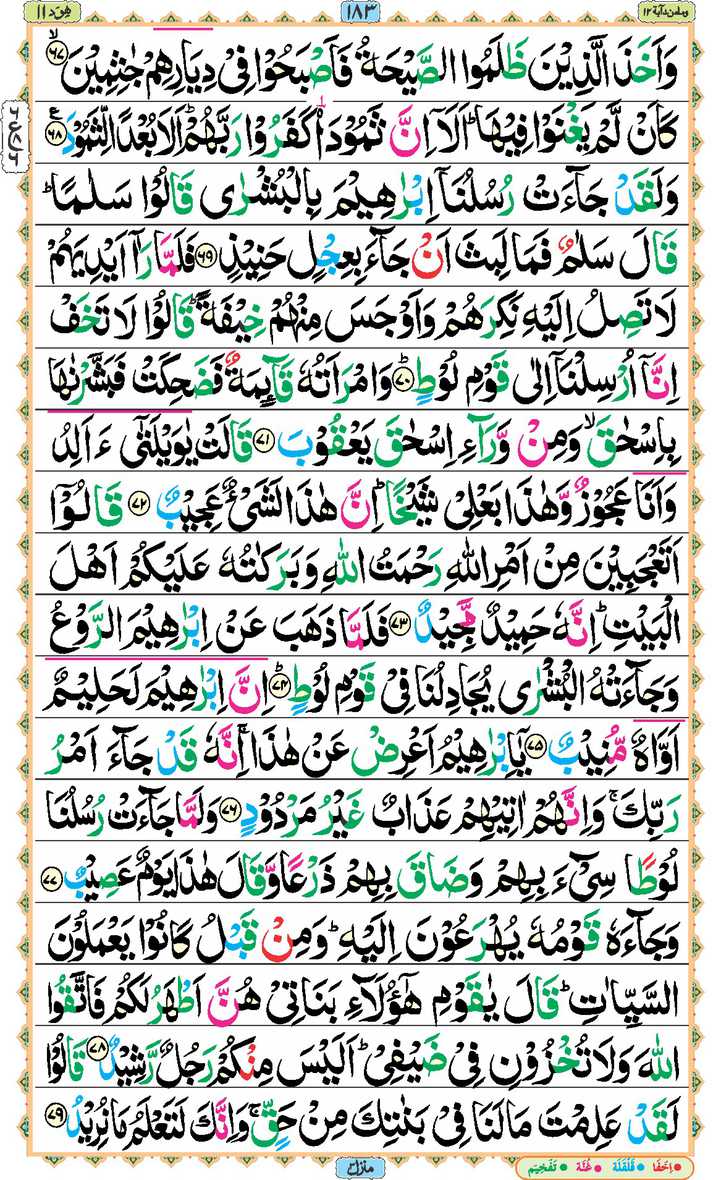 وما من دآبة ١٢
١٨٣
هود ١١
وَاَخَذَ الَّذِيْنَ ظَلَمُوا الصَّيْحَةُ فَاَصْبَحُوْا فِىْ دِيَارِهِمْ جٰثِمِيْنَۙ‏ ﴿۶۷﴾
كَاَنْ لَّمْ يَغْنَوْا فِيْهَا‌ؕ اَلَاۤ اِنَّ ثَمُوْدَا۟ كَفَرُوْا رَبَّهُمْ‌ؕ اَلَا بُعْدًا لِّثَمُوْدَ ﴿۶۸﴾
وَلَقَدْ جَآءَتْ رُسُلُنَاۤ اِبْرٰهِيْمَ بِالْبُشْرٰى قَالُوْا سَلٰمًا‌ؕ
قَالَ سَلٰمٌ‌ فَمَا لَبِثَ اَنْ جَآءَ بِعِجْلٍ حَنِيْذٍ ﴿۶۹﴾ فَلَمَّا رَاٰۤ اَيْدِيَهُمْ
لَا تَصِلُ اِلَيْهِ نَكِرَهُمْ وَاَوْجَسَ مِنْهُمْ خِيْفَةً‌ ؕ قَالُوْا لَا تَخَفْ
اِنَّاۤ اُرْسِلْنَاۤ اِلٰى قَوْمِ لُوْطٍؕ ﴿۷۰﴾ وَامْرَاَتُهٗ قَآٮِٕمَةٌ فَضَحِكَتْ فَبَشَّرْنٰهَا
بِاِسْحٰقَۙ وَمِنْ وَّرَآءِ اِسْحٰقَ يَعْقُوْبَ ﴿۷۱﴾ قَالَتْ يٰوَيْلَتٰٓى ءَاَلِدُ
وَاَنَا عَجُوْزٌ وَّهٰذَا بَعْلِىْ شَيْخًا ‌ؕ اِنَّ هٰذَا لَشَىْءٌ عَجِيْبٌ ﴿۷۲﴾ قَالُوْۤا
اَتَعْجَبِيْنَ مِنْ اَمْرِ اللّٰهِ‌ رَحْمَتُ اللّٰهِ وَبَرَكٰتُهٗ عَلَيْكُمْ اَهْلَ
الْبَيْتِ‌ؕ اِنَّهٗ حَمِيْدٌ مَّجِيْدٌ ﴿۷۳﴾ فَلَمَّا ذَهَبَ عَنْ اِبْرٰهِيْمَ الرَّوْعُ
وَجَآءَتْهُ الْبُشْرٰى يُجَادِلُنَا فِىْ قَوْمِ لُوْطٍؕ ﴿۷۴﴾ اِنَّ اِبْرٰهِيْمَ لَحَلِيْمٌ
اَوَّاهٌ مُّنِيْبٌ ﴿۷۵﴾ يٰۤاِبْرٰهِيْمُ اَعْرِضْ عَنْ هٰذَا‌ۚ اِنَّهٗ قَدْ جَآءَ اَمْرُ
رَبِّكَ‌ۚ وَاِنَّهُمْ اٰتِيْهِمْ عَذَابٌ غَيْرُ مَرْدُوْدٍ ﴿۷۶﴾ وَلَمَّا جَآءَتْ رُسُلُنَا
لُوْطًا سِىْٓءَ بِهِمْ وَضَاقَ بِهِمْ ذَرْعًا وَّقَالَ هٰذَا يَوْمٌ عَصِيْبٌ ﴿۷۷﴾
وَجَآءَهٗ قَوْمُهٗ يُهْرَعُوْنَ اِلَيْهِؕ وَمِنْ قَبْلُ كَانُوْا يَعْمَلُوْنَ
السَّيِّاٰتِ‌ؕ قَالَ يٰقَوْمِ هٰٓؤُلَاۤءِ بَنٰتِىْ هُنَّ اَطْهَرُ لَكُمْ‌ فَاتَّقُوا
اللّٰهَ وَلَا تُخْزُوْنِ فِىْ ضَيْفِىْ ؕ اَلَيْسَ مِنْكُمْ رَجُلٌ رَّشِيْدٌ ﴿۷۸﴾ قَالُوْا
لَقَدْ عَلِمْتَ مَا لَنَا فِىْ بَنٰتِكَ مِنْ حَقٍّ‌ ۚ وَاِنَّكَ لَتَعْلَمُ مَا نُرِيْدُ ﴿۷۹﴾
منزل ۳
اِخفَا قَلْقَلَة غُنَّة تَفْخِيْم